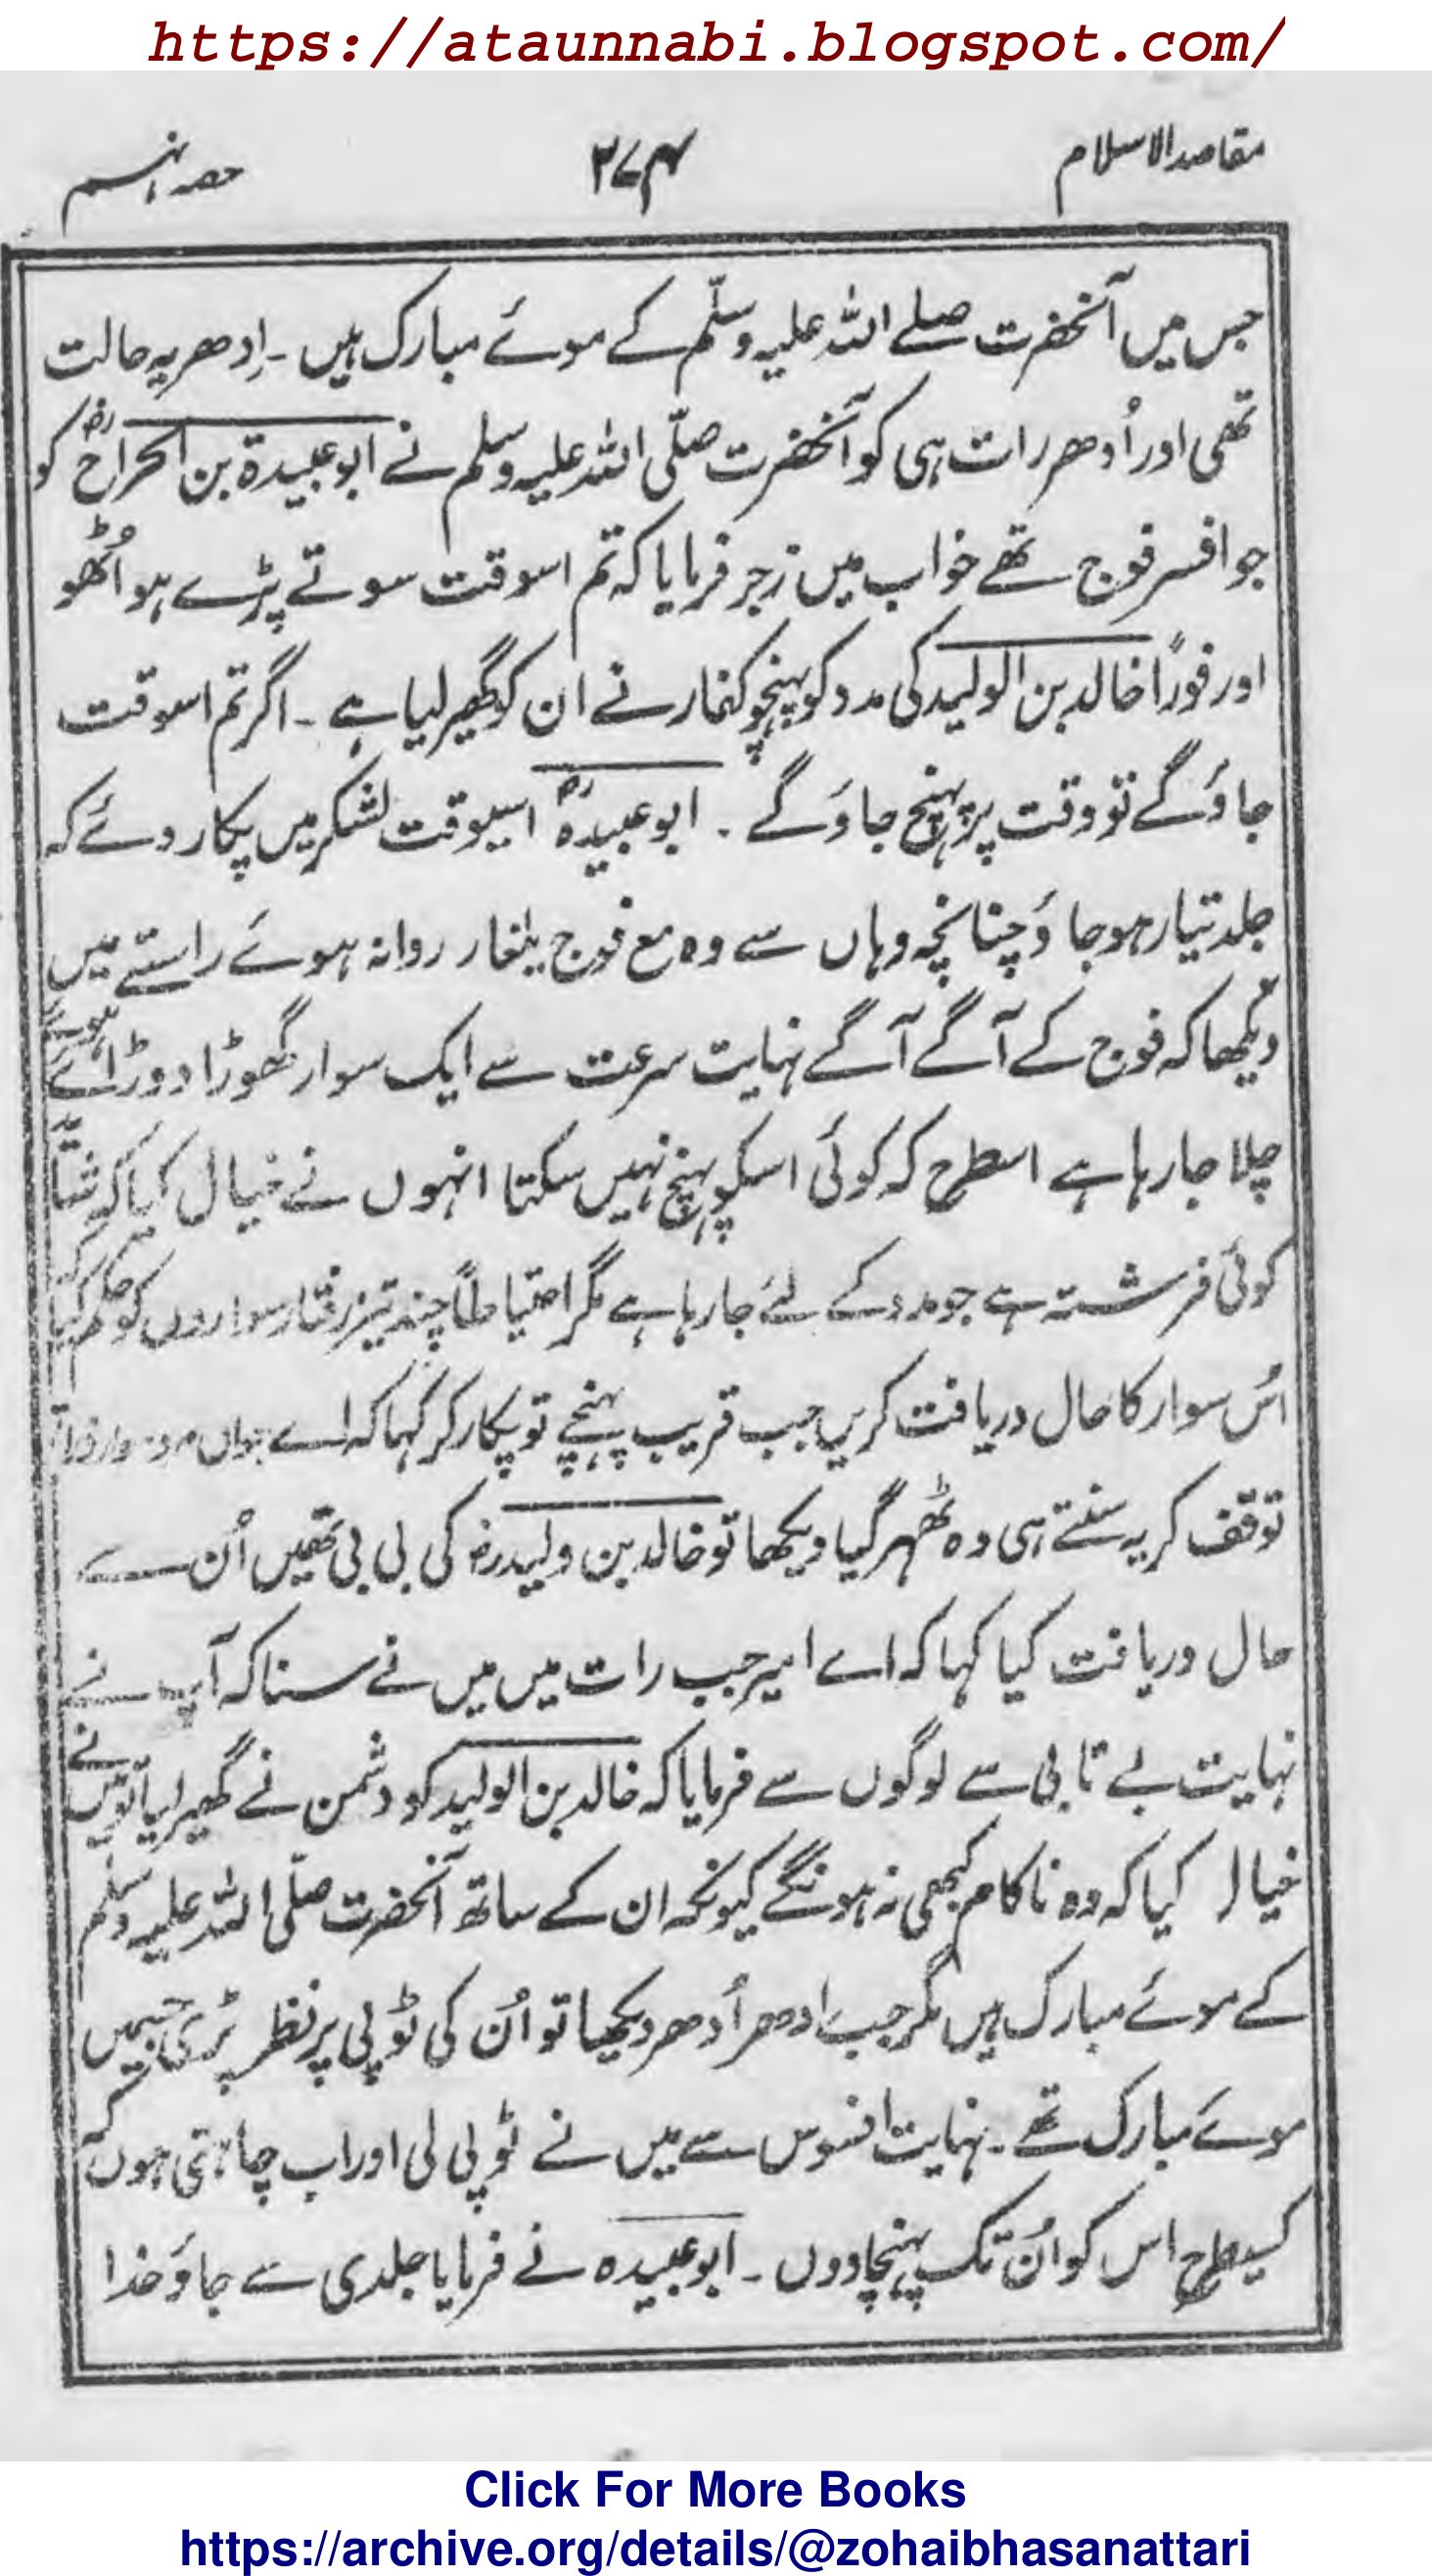 https://ataunnabi.blogspot.com/
مقاصد الاسلام
۲۷۴
حصہ نہم
جس میں آنحضرت صلے اللہ علیہ وسلّم کے موئے مبارک ہیں ۔ اِدھر یہ حالت
تھی اور اُدھر رات ہی کو آنحضرت صلّی اللہ علیہ وسلم نے ابو عبیدۃ بن الجراح رضؓ کو
جو افسر فوج تھے خواب میں زجر فرمایا کہ تم اسوقت سوتے پڑے ہو اُٹھو
اور فوراً خالد بن الولید کی مدد کو پہنچو کفار نے ان کو گھیر لیا ہے ۔ اگر تم اسوقت
جاؤ گے تو وقت پر پہنچ جاؤ گے ۔ ابو عبیدہ رضؓ اسیوقت لشکر میں پکار دئے کہ
جلد تیار ہو جاؤ چنانچہ وہاں سے وہ مع فوج یلغار روانہ ہوئے راستے میں
دیکھا کہ فوج کے آگے آگے نہایت سرعت سے ایک سوار گھوڑا دوڑائے ہوئے
چلا جا رہا ہے اسطرح کہ کوئی اسکو پہنچ نہیں سکتا انہوں نے خیال کیا کہ شاید
کوئی فرشتہ ہے جو مدد کے لئے جا رہا ہے مگر احتیاطاً چند تیز رفتار سواروں کو حکم کیا کہ
اُس سوار کا حال دریافت کریں جب قریب پہنچے تو پکار کر کہا کہ اے جواں مرد سوار ذرا
توقف کر یہ سنتے ہی وہ ٹھہر گیا دیکھا تو خالد بن ولید رضؓ کی بی بی تھیں اُن سے
حال دریافت کیا کہا کہ اے امیر جب رات میں میں نے سنا کہ آپ نے
نہایت بے تابی سے لوگوں سے فرمایا کہ خالد بن الولید کو دشمن نے گھیر لیا تو میں نے
خیال کیا کہ وہ ناکام کبھی نہ ہونگے کیونکہ ان کے ساتھ آنحضرت صلّی اللہ علیہ وسلّم
کے موئے مبارک ہیں مگر جب ادھر اُدھر دیکھا تو اُن کی ٹوپی پر نظر پڑی جسمیں
موئے مبارک تھے ۔ نہایت افسوس سے میں نے ٹوپی لی اور اب چاہتی ہوں کہ
کسیطرح اس کو اُن تک پہنچا دوں ۔ ابو عبیدہ نے فرمایا جلدی سے جاؤ خدا
Click For More Books
https://archive.org/details/@zohaibhasanattari